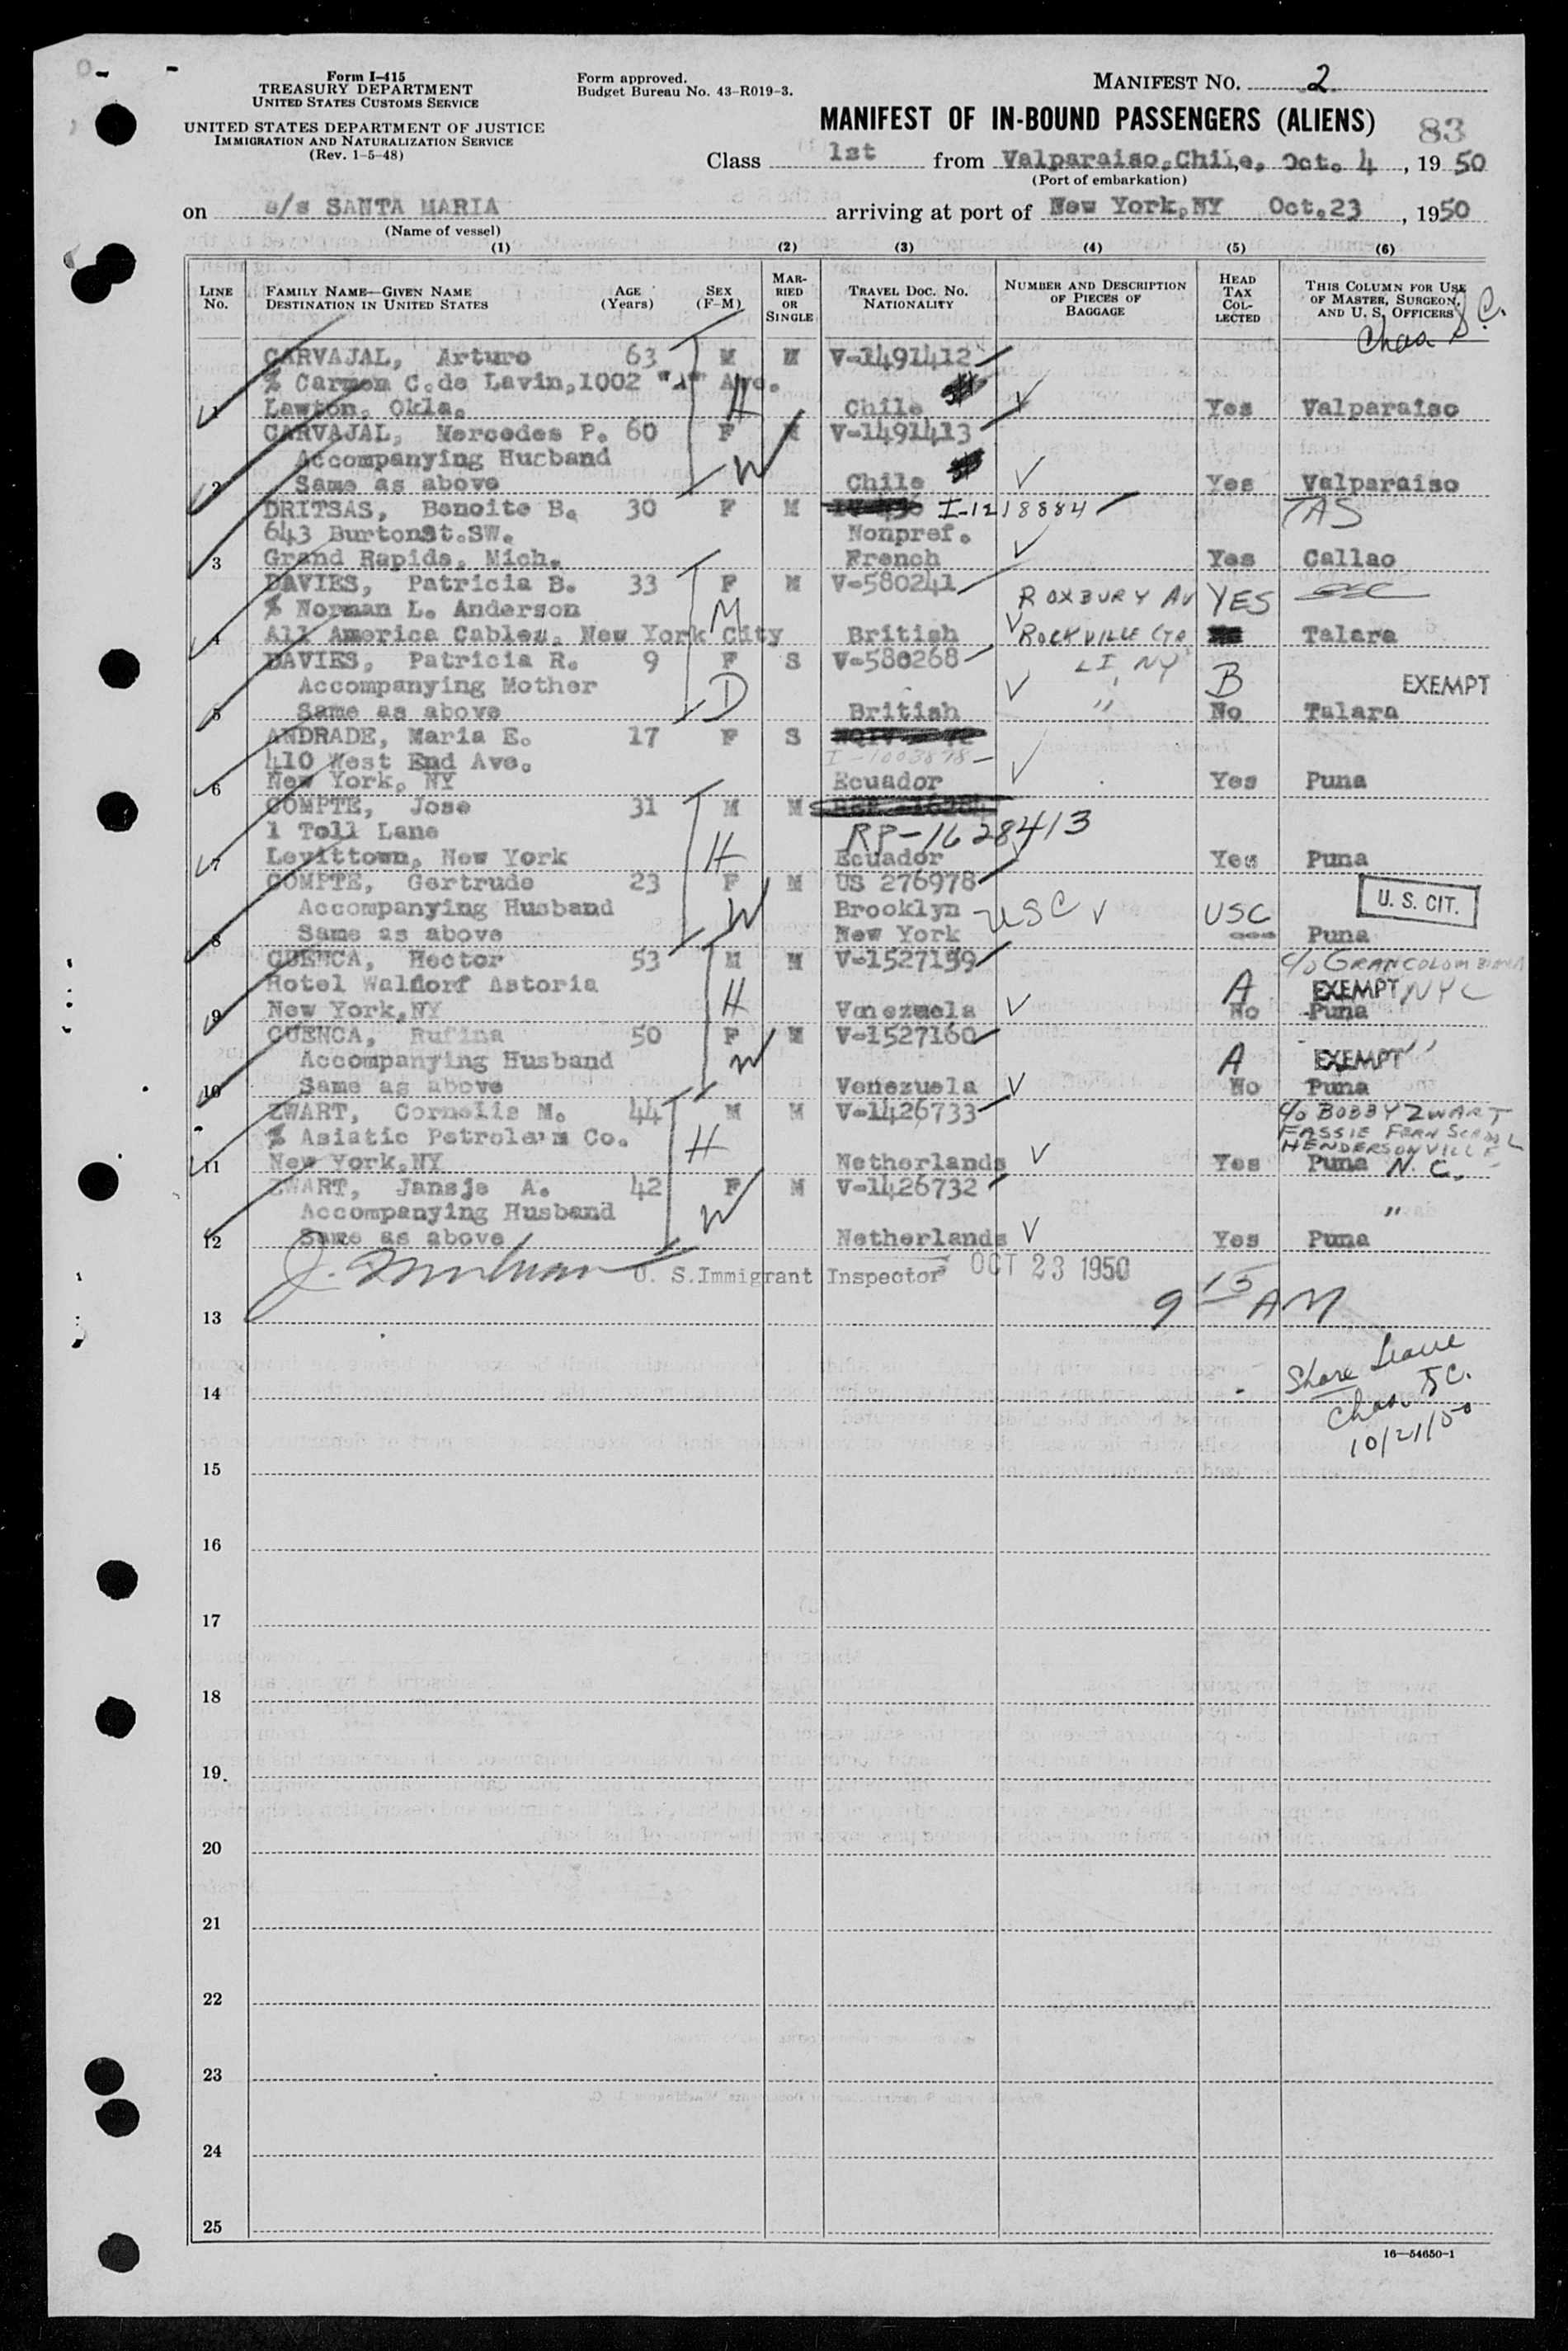 Form I-415
TREASURY DEPARTMENT
UNITED STATES CUSTOMS SERVICE
UNITED STATES DEPARTMENT OF JUSTICE
IMMIGRATION AND NATURALIZATION SERVICE
(Rev. 1-5-48)
Form approved.
Budget Bureau No. 43-R019-3.
MANIFEST NO. 2
MANIFEST OF IN-BOUND PASSENGERS (ALIENS)
83
Class 1st from Valparaiso, Chile, Oct. 4, 1950
(Port of embarkation)
on s/s SANTA MARIA arriving at port of New York, NY Oct. 23, 1950
(Name of vessel)
(1) (2) (3) (4) (5) (6)
LINE NO. FAMILY NAME—GIVEN NAME DESTINATION IN UNITED STATES AGE (Years) SEX (F-M) MARRIED OR SINGLE TRAVEL DOC. NO. NATIONALITY NUMBER AND DESCRIPTION OF PIECES OF BAGGAGE HEAD TAX COLLECTED THIS COLUMN FOR USE OF MASTER, SURGEON, AND U. S. OFFICERS
Chas S.C.
CARVAJAL, Arturo 63 M M V-1491412
% Carmen C. de Lavin, 1002 "A" Ave. H
1 Lawton, Okla. Chile Yes Valparaiso
CARVAJAL, Mercedes P. 60 F M V-1491413
Accompanying Husband W
2 Same as above Chile Yes Valparaiso
DRITSAS, Benoite B. 30 F M I-1218884 TAS
643 Burton St. SW. Nonpref.
3 Grand Rapids, Mich. French Yes Callao
DAVIES, Patricia B. 33 F M V-580241
% Norman L. Anderson M ROXBURY AV YES
4 All America Cables, New York City British ROCKVILLE CTR Talara
DAVIES, Patricia R. 9 F S V-580268 LI NY
Accompanying Mother D " B EXEMPT
5 Same as above British No Talara
ANDRADE, Maria E. 17 F S
410 West End Ave. I-1003878
6 New York, NY Ecuador Yes Puna
COMPTE, Jose 31 M M
1 Toll Lane RP-1628413
7 Levittown, New York H Ecuador Yes Puna
COMPTE, Gertrude 23 F M US 276978
Accompanying Husband W Brooklyn USC USC U. S. CIT.
8 Same as above New York Puna
CUENCA, Hector 53 M M V-1527159 c/o GRANCOLOMBIANA
Hotel Waldorf Astoria H A EXEMPT NYC
9 New York, NY Venezuela No Puna
CUENCA, Rufina 50 F M V-1527160
Accompanying Husband W A EXEMPT "
10 Same as above Venezuela No Puna
ZWART, Cornelis M. 44 M M V-1426733 c/o BOBBY ZWART
% Asiatic Petroleum Co. H FASSIE FERN SCHOOL
HENDERSONVILLE
11 New York, NY Netherlands Yes Puna N. C.
ZWART, Jansje A. 42 F M V-1426732
Accompanying Husband W "
12 Same as above Netherlands Yes Puna
U. S. Immigrant Inspector OCT 23 1950
13 9 15 AM
14 Shore Leave
Chas SC.
10/21/50
15
16
17
18
19
20
21
22
23
24
25
16—54650-1